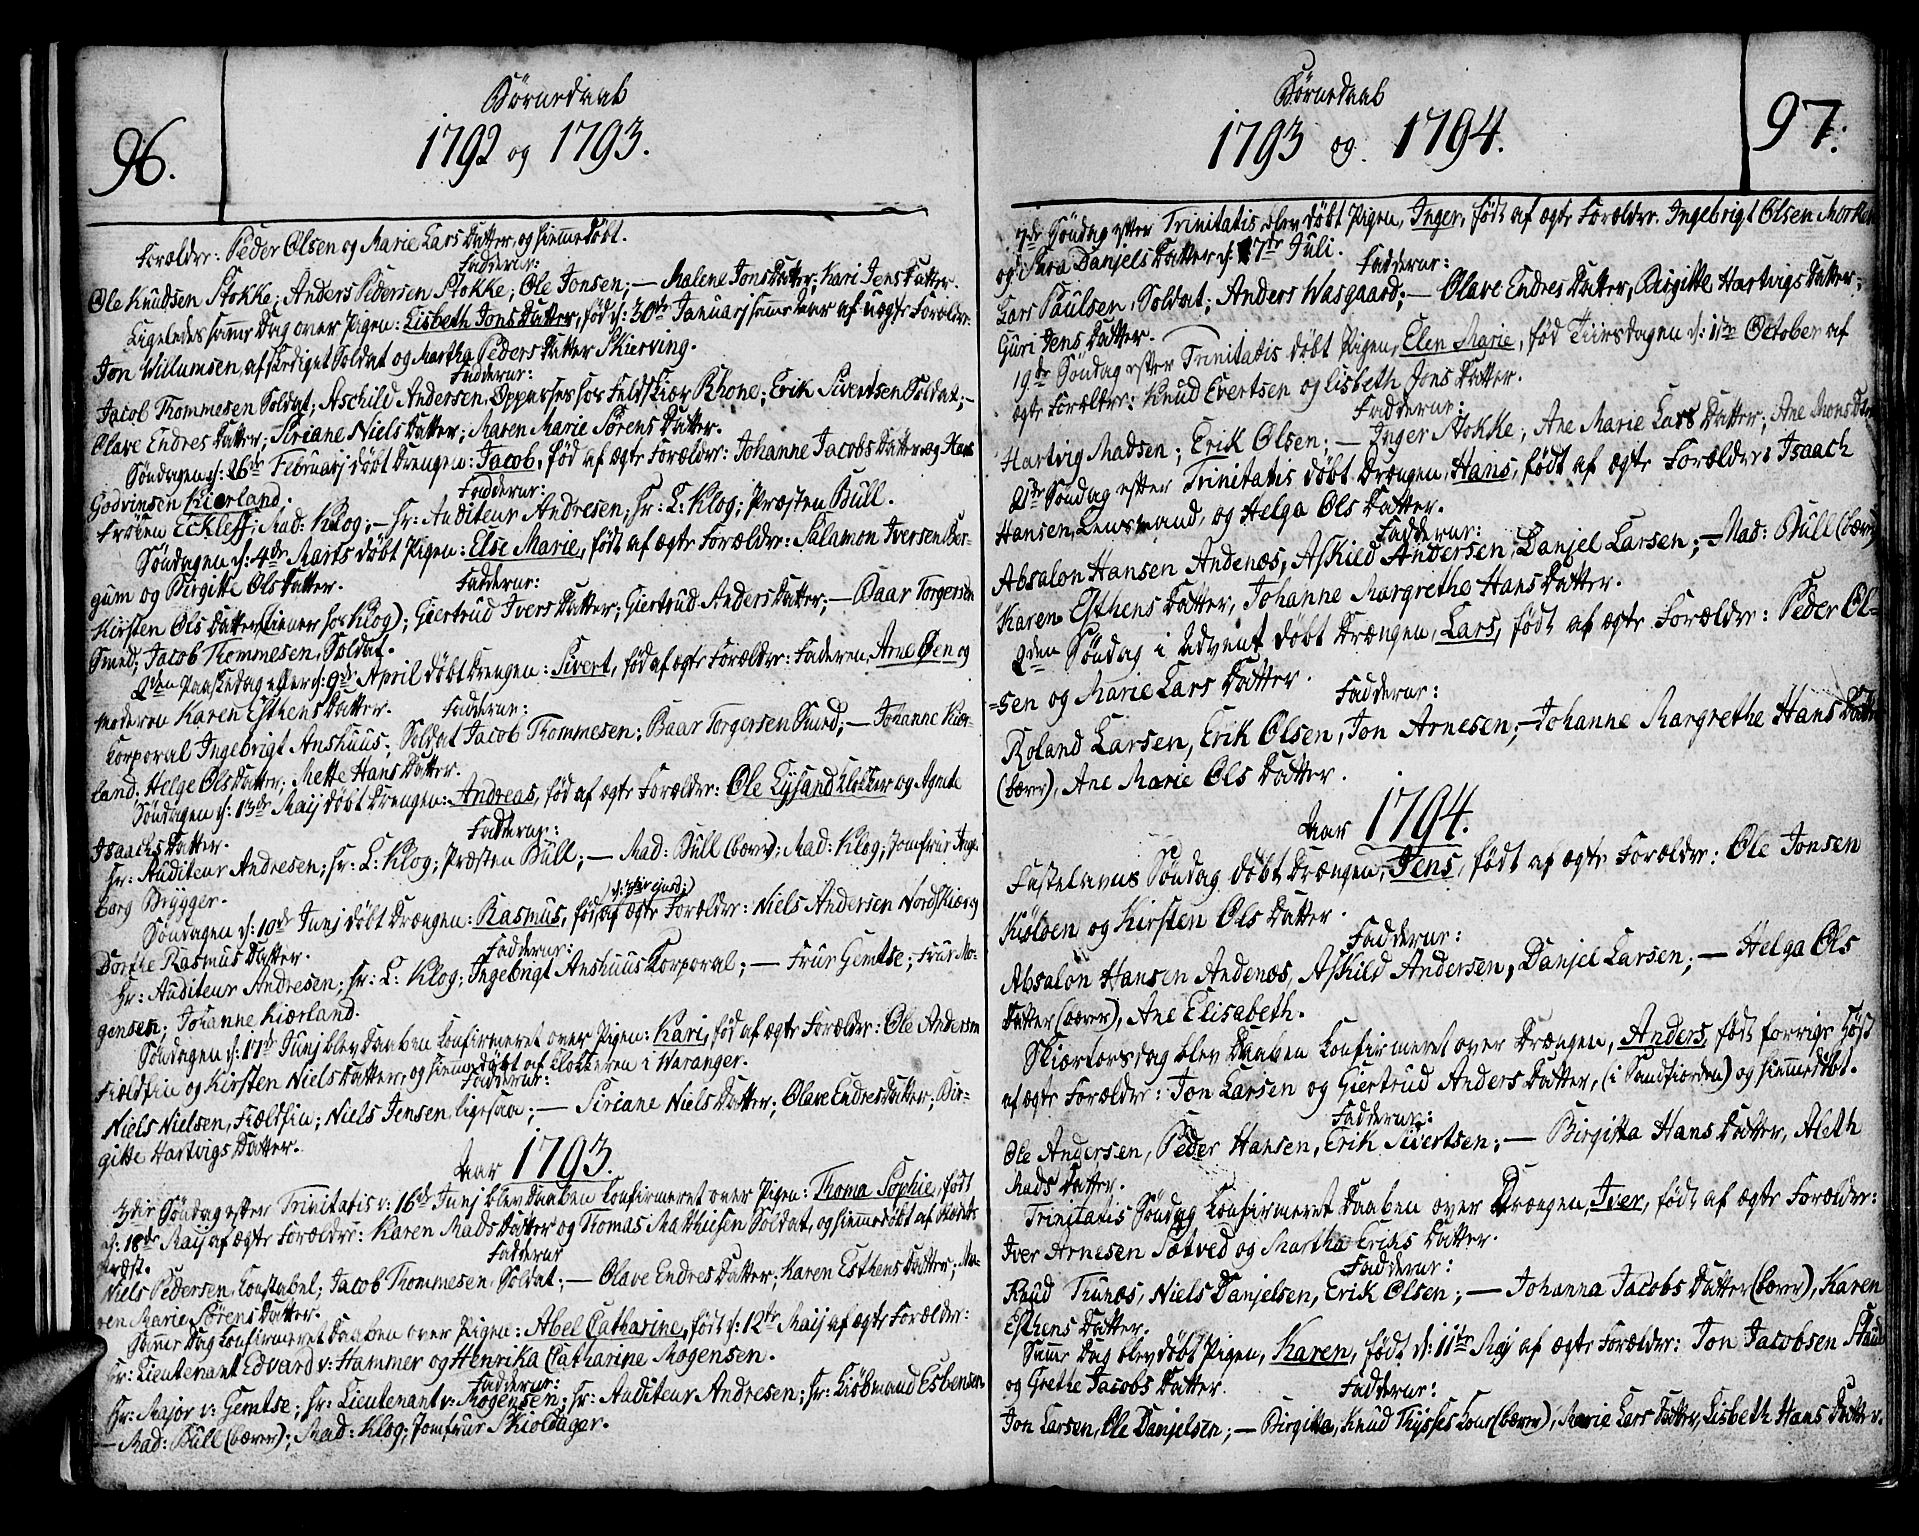 Børnedaab
96.
1792 og 1793.
Forældre: Peder Olsen og Marie Lars Datter, og hiemmedøbt.
Fadderne:
Ole Knudsen Stokke; Anders Pedersen Stokke; Ole Jonsen; — Malene Jons Datter; Kari Jens Datter.
Ligeledes samme Dag over Pigen: Lisbeth Jons Datter, fød d: 30te Januarj samme Aar af uægte Forældre:
Jon Willumsen, afskediget Soldat og Martha Peders Datter Skierving.
Fadderne:
Jacob Thommesen Soldat; Aschild Andersen, Oppasser hos Feldskiær Rhone; Erik Sivertsen Soldat; —
Olave Endres Datter; Siriane Niels Datter; Maren Marie Sørens Datter.
Søndagen d: 26de Februarj døbt Drengen: Jacob, fød af ægte Forældre: Johanne Jacobs Datter og Hans
Godvinsen Kierland.
Fadderne:
Frøien Eckleff; Mad: Klog; — Hr: Auditeur Andresen; Hr: L: Klog; Præsten Bull.
Søndagen d: 4de Marts døbt Pigen: Else Marie, født af ægte Forældre: Salamon Iversen Bor-
gum og Birgitte Ols Datter.
Fadderne:
Kirsten Ols Datter (tiener hos Klog); Giertrud Ivers Datter; Giertrud Anders Datter; — Baar Torgersen
Smed; Jacob Thommesen, Soldat.
2den Paaskedag eller d: 9de April døbt Drengen: Sivert, fød af ægte Forældre: Faderen Arne Øen og
Moderen Karen Esthens Datter.
Fadderne:
Korporal Ingebrigt Anshuus; Soldat Jacob Thommesen; Baar Torgersen Smed; — Johanne Kiær-
land; Helge Ols Datter; Mette Hans Datter.
Søndagen d: 13de Maij døbt Drengen: Andreas, fød af ægte Forældre: Ole Lysand Klokker og Agnete
Isaachs Datter.
Fadderne:
Hr: Auditeur Andresen; Hr: L: Klog; Præsten Bull; — Mad: Bull (bærer); Mad: Klog; Jomfrue Inge-
borg Brygger.
Søndagen d: 10de Junj døbt Drængen: Rasmus, fød af ægte Forældre: Niels Andersen Nordskiær og
Dorthe Rasmus Datter.
Fadderne:
Hr: Auditeur Andresen; Hr: L: Klog; Ingebrigt Anshuus Korporal; — Frue Gemtse; Frue Mo-
gensen; Johanne Kiærland.
Søndagen d: 17de Junj blev Daaben konfirmeret over Pigen: Kari, fød af ægte Forældre: Ole Andersen
Fieldfin og Kirsten Niels Datter, og hiemmedøbt af Klokkeren i Waranger.
Fadderne:
Niels Nielsen, Fieldfin; Niels Jensen ligesaa; — Siriane Niels Datter; Olave Endres Datter; Bir-
gitte Hartvigs Datter.
Aar 1793.
3die Søndag efter Trinitatis d: 16de Junj blev Daaben konfirmeret over Pigen: Thoma Sophie, født
d: 18de Maij af ægte Forældre: Karen Mads Datter og Thomas Mathiesen Soldat, og hiemmedøbt af Stedets
Præst.
Fadderne
Niels Pedersen, Konstabel; Jacob Thommesen Soldat; — Olave Endres Datter; Karen Esthens Datter; Ma-
ren Marie Sørens Datter.
Samme Dag konfirmeret Daaben over Pigen: Abel Catharine, født d: 12te Maij af ægte Forældre:
Hr: Lieutenant Edvard v: Hammer og Henrika Catharine Mogensen.
Fadderne:
Hr: Major v: Gemtse; Hr: Lieutenant v: Mogensen; Hr: Auditeur Andresen; Hr: Kiøbmand Esbensen
— Mad: Bull (bærer); Mad: Klog; Jomfrue Skioldager.
Børnedaab
97.
1793 og 1794.
7de Søndag efter Trinitatis, blev døbt Pigen, Inger, født af ægte Forældre: Ingebrigt Olsen
og Sara Danjels Datter d: 17de Juli.
Fadderne:
Lars Paulsen, Soldat; Anders Wasgaard; — Olave Endres Datter, Birgitte Hartvigs Datter,
Guri Jens Datter.
19de Søndag efter Trinitatis døbt Pigen, Elen Marie, fød Tiirsdagen d: 1ste October af
ægte Forældre: Knud Evertsen og Lisbeth Jons Datter.
Fadderne:
Hartvig Madsen; Erik Olsen; — Inger Stokke; Ane Marie Lars Datter; Ane Mons Datter
21de Søndag efter Trinitatis døbt Drængen, Hans, født af ægte Forældre: Isaach
Hansen, Lensmand, og Helga Ols Datter.
Fadderne:
Absalon Hansen Andenæs, Askild Andersen, Danjel Larsen; — Mad: Bull (bærer)
Karen Esthens Datter, Johanne Margrethe Hans Datter.
2den Søndag i Advent døbt Drængen, Lars, født af ægte Forældre: Peder Ol-
=sen og Marie Lars Datter.
Fadderne:
Roland Larsen, Erik Olsen, Jon Arnesen; — Johanne Margrethe Hans Datter
(bærer), Ane Marie Ols Datter.
Aar 1794.
Fastelavns Søndag døbt Drængen, Jens, født af ægte Forældre: Ole Jonsen
Kiølsen og Kirsten Ols Datter.
Fadderne:
Absalon Hansen Andenæs, Askild Andersen, Danjel Larsen; — Helga Ols
Datter (bærer), Ane Elisabeth.
Skiærtorsdag blev Daaben konfirmeret over Drængen, Anders, født forrige Høst
af ægte Forældre: Jon Larsen og Giertrud Anders Datter, (i Sandfiorden) og hiemmedøbt.
Fadderne:
Ole Andersen, Peder Hansen, Erik Sivertsen; — Birgitta Hans Datter, Aleth
Mads Datter.
Trinitatis Søndag konfirmeret Daaben over Drængen, Iver, født af ægte Forældre:
Iver Arnesen Sætved og Martha Eriks Datter.
Fadderne:
Knud Trunæs, Niels Danjelsen, Erik Olsen; — Johanna Jacobs Datter (bærer), Karen
Esthens Datter.
Samme Dag blev døbt Pigen, Karen, født d: 11te Maj af ægte Forældre: Jon Jacobsen
og Grethe Jacobs Datter.
Fadderne:
Jon Larsen, Ole Danjelsen; — Birgitta, Knud Thyses Kone (bærer), Marie Lars Datter, Lisbeth Hans Datter.